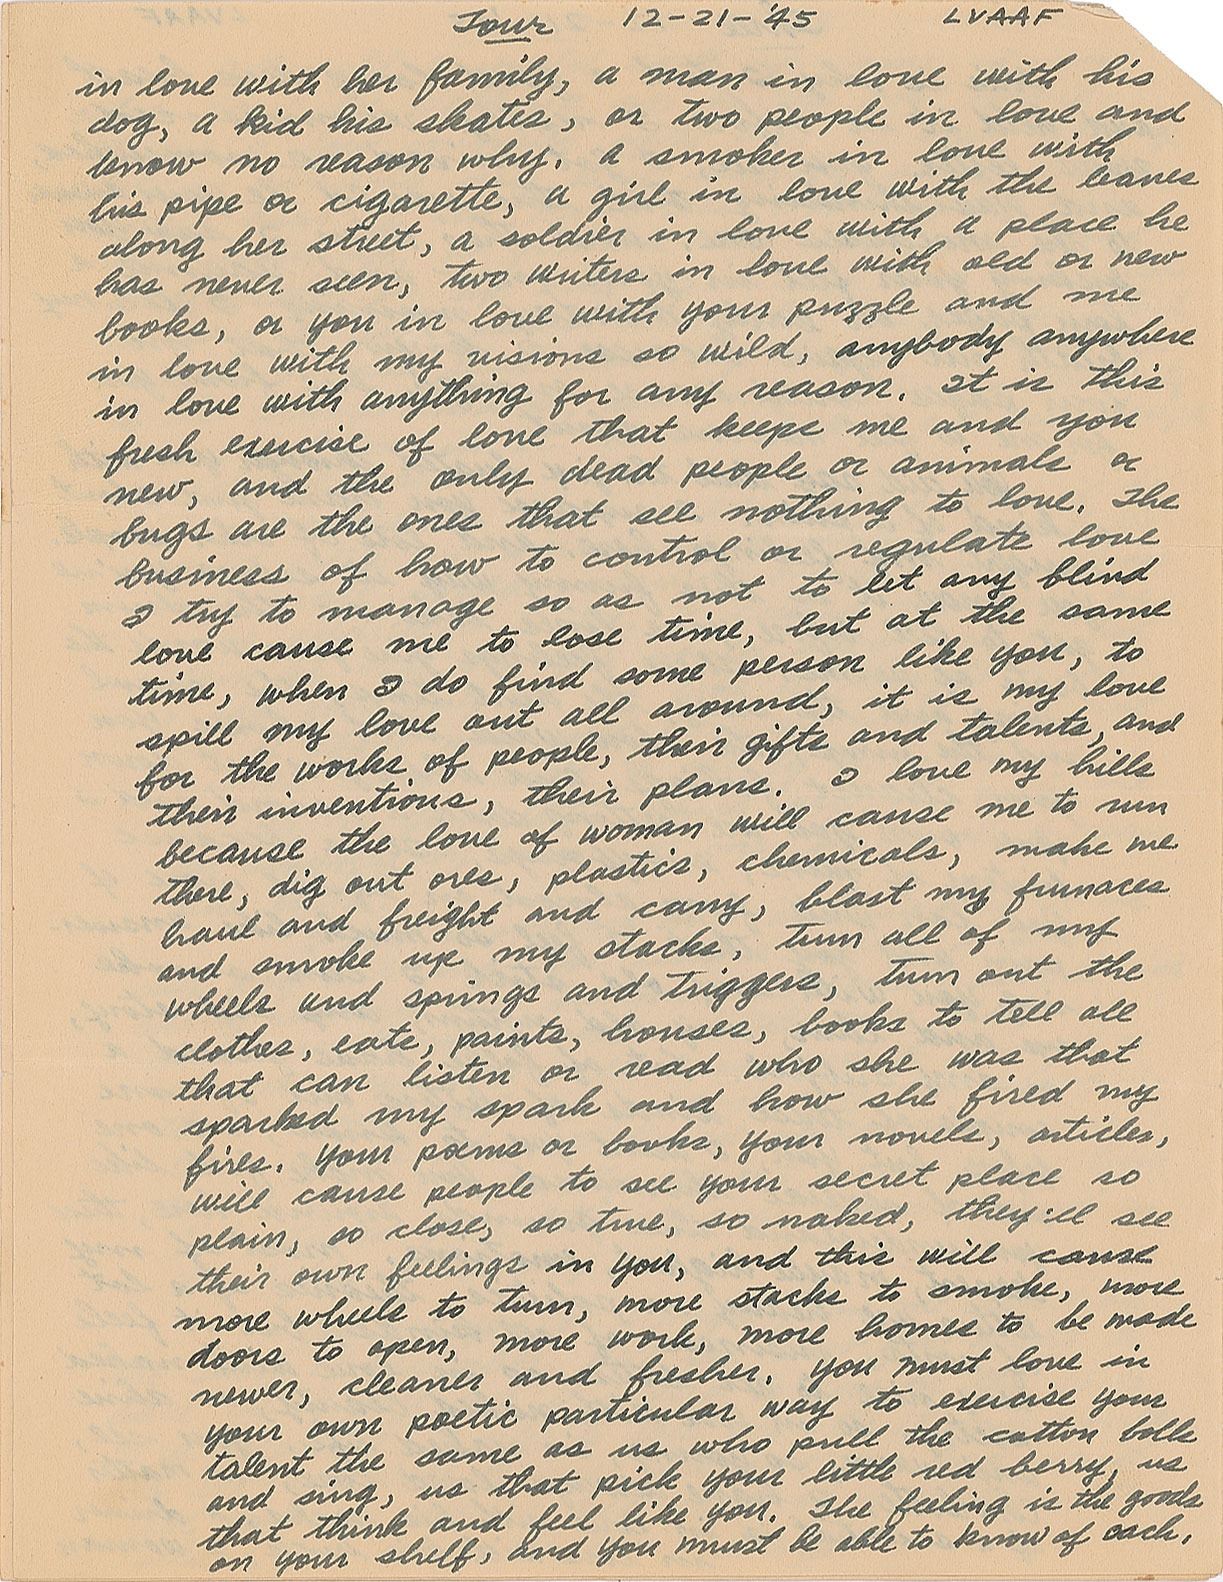 Four 12-21-'45 LVAAF
in love with her family, a man in love with his
dog, a kid his skates, or two people in love and
know no reason why. a smoker in love with
his pipe or cigarette, a girl in love with the leaves
along her street, a soldier in love with a place he
has never seen, two writers in love with old or new
books, or you in love with your puzzle and me
in love with my visions so wild, anybody anywhere
in love with anything for any reason. It is this
fresh exercise of love that keeps me and you
new, and the only dead people or animals or
bugs are the ones that see nothing to love. The
business of how to control or regulate love
I try to manage so as not to let any blind
love cause me to lose time, but at the same
time, when I do find some person like you, to
spill my love out all around, it is my love
for the works of people, their gifts and talents, and
their inventions, their plans. I love my hills
because the love of woman will cause me to run
there, dig out ores, plastics, chemicals, make me
haul and freight and carry, blast my furnaces
and smoke up my stacks, turn all of my
wheels and springs and triggers, turn out the
clothes, eats, paints, houses, books to tell all
that can listen or read who she was that
sparked my spark and how she fired my
fires. your poems or books, your novels, articles,
will cause people to see your secret place so
plain, so close, so true, so naked, they'll see
their own feelings in you, and this will cause
more wheels to turn, more stacks to smoke, more
doors to open, more work, more homes to be made
newer, cleaner and fresher. you must love in
your own poetic particular way to exercise your
talent the same as us who pull the cotton bolls
and sing, us that pick your little red berry, us
that think and feel like you. The feeling is the goods
on your shelf, and you must be able to know of each,